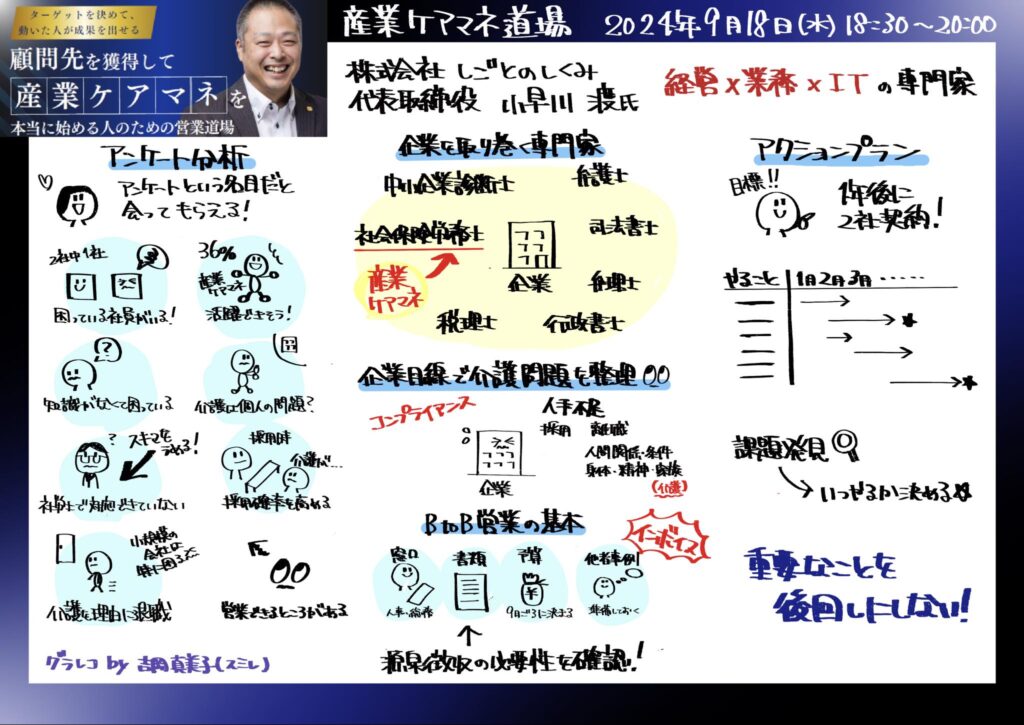 ターゲットを決めて、
動いた人が成果を出せる
顧問先を獲得して
産業ケアマネを
本当に始める人のための営業道場
産業ケアマネ道場 2024年9月18日(水) 18:30〜20:00
株式会社 しごとのしくみ
代表取締役 小早川 渡氏
経営×業務×ITの専門家
アンケート分析
アンケートという名目だと
会ってもらえる!
2社中1社
困っている社員がいる!
36%
産業
ケアマネ
活躍できそう!
?
知識がなくて困っている
介護は個人の問題?
? スキマを
うめる!
社労士で対応できていない
採用時
介護が…
採用確率を高める
小規模の
会社は
特に困る…
介護を理由に退職
営業できるところがある
企業を取り巻く専門家
中小企業診断士
弁護士
社会保険労務士
司法書士
産業
ケアマネ
企業
弁理士
税理士
行政書士
企業目線で介護問題を整理
コンプライアンス
人手不足
採用 離職
人間関係・条件
身体・精神・家族
(介護)
企業
BtoB営業の基本
インボイス
窓口
人事・総務
書類
予算
¥
9月ごろに決まる
他者事例
準備しておく
源泉徴収の必要性を確認!
アクションプラン
目標!!
1年後に
2社契約!
やること 1月2月3月……
課題発見
いつやるか決める
重要なことを
後回しにしない!
グラレコ by 吉岡真美子(スミレ)